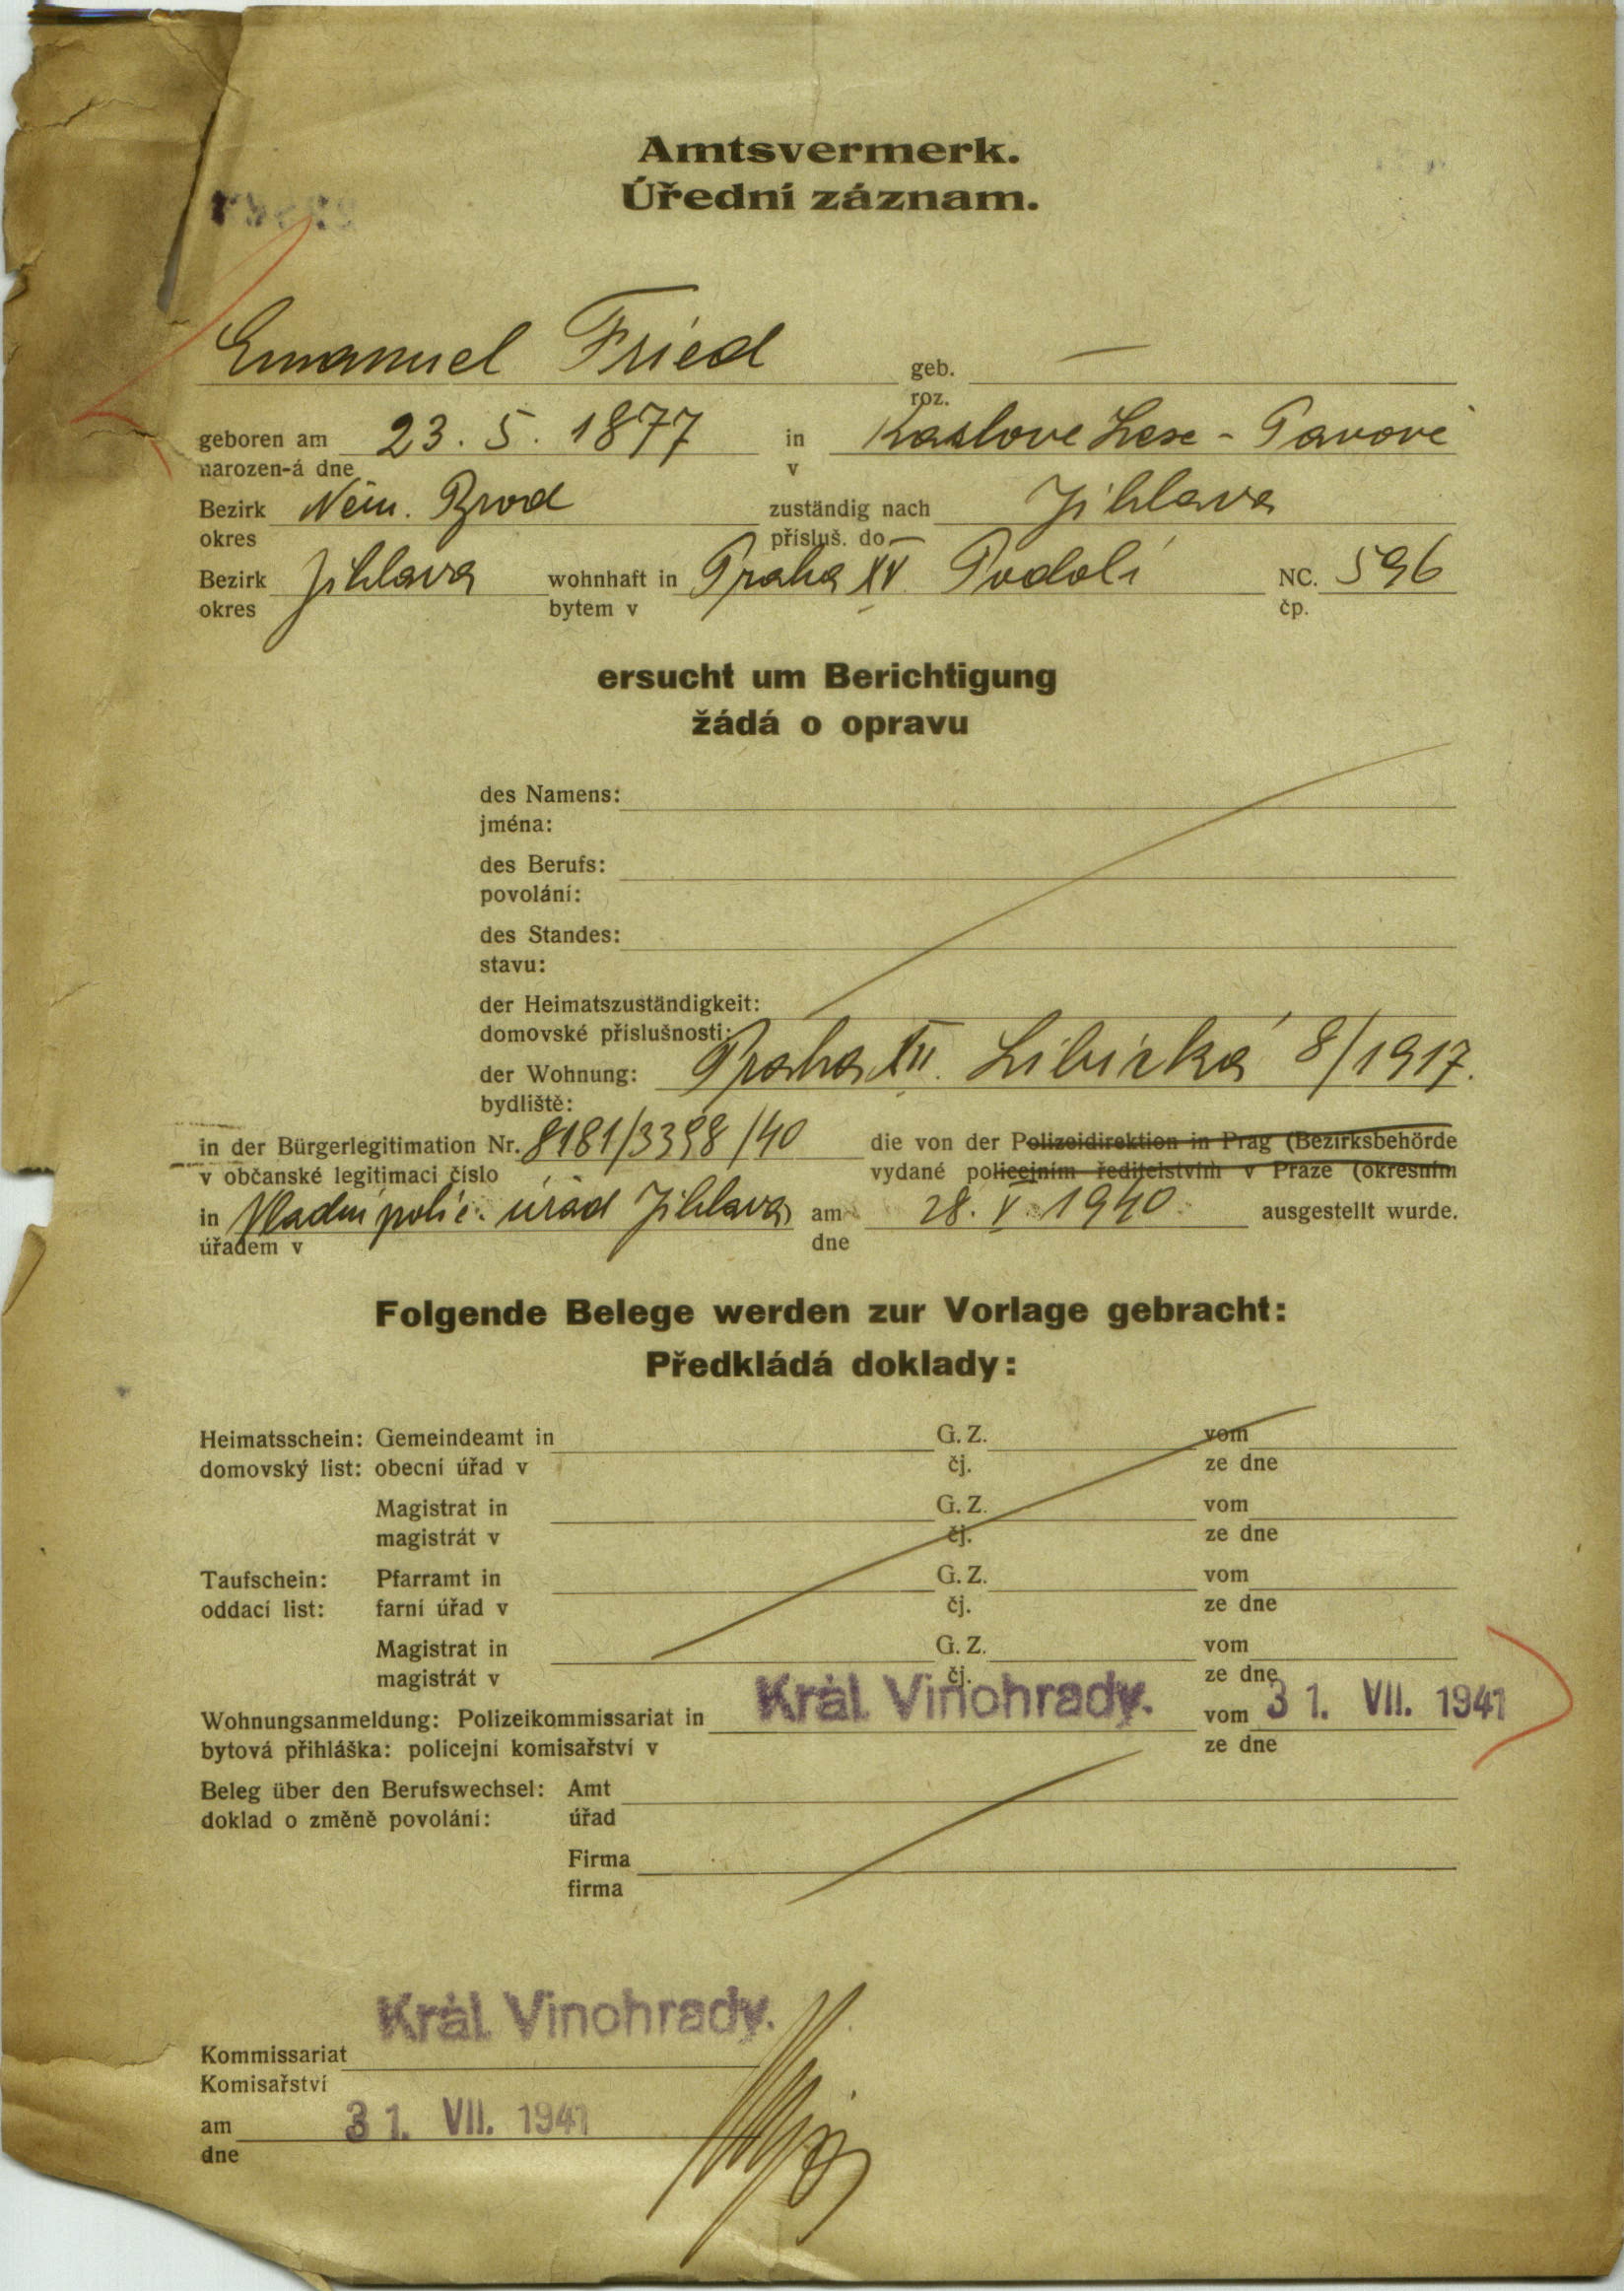 Amtsvermerk.
Úřední záznam.
Emanuel Fried geb.
roz.
geboren am 23. 5. 1877 in
narozen-á dne v
Bezirk Něm. Brod zuständig nach Jihlava
okres přísluš. do
Bezirk Jihlava wohnhaft in Praha XV Podolí NC. 596
okres bytem v čp.
ersucht um Berichtigung
žádá o opravu
des Namens:
jména:
des Berufs:
povolání:
des Standes:
stavu:
der Heimatszuständigkeit:
domovské příslušnosti:
der Wohnung: Praha XII. Libická 8/1917.
bydliště:
in der Bürgerlegitimation Nr. 8181/3398/40 die von der Polizeidirektion in Prag (Bezirksbehörde
v občanské legitimaci číslo vydané policejním ředitelstvím v Praze (okresním
in Vladní polic. úřad Jihlava am 28. V. 1940 ausgestellt wurde.
úřadem v dne
Folgende Belege werden zur Vorlage gebracht:
Předkládá doklady:
Heimatsschein: Gemeindeamt in G. Z. vom
domovský list: obecní úřad v čj. ze dne
Magistrat in G. Z. vom
magistrát v čj. ze dne
Taufschein: Pfarramt in G. Z. vom
oddací list: farní úřad v čj. ze dne
Magistrat in G. Z. vom
magistrát v čj. ze dne
Wohnungsanmeldung: Polizeikommissariat in Král. Vinohrady. vom 31. VII. 1941
bytová přihláška: policejní komisařství v ze dne
Beleg über den Berufswechsel: Amt
doklad o změně povolání: úřad
Firma
firma
Král. Vinohrady.
Kommissariat
Komisařství
am 31. VII. 1941
dne